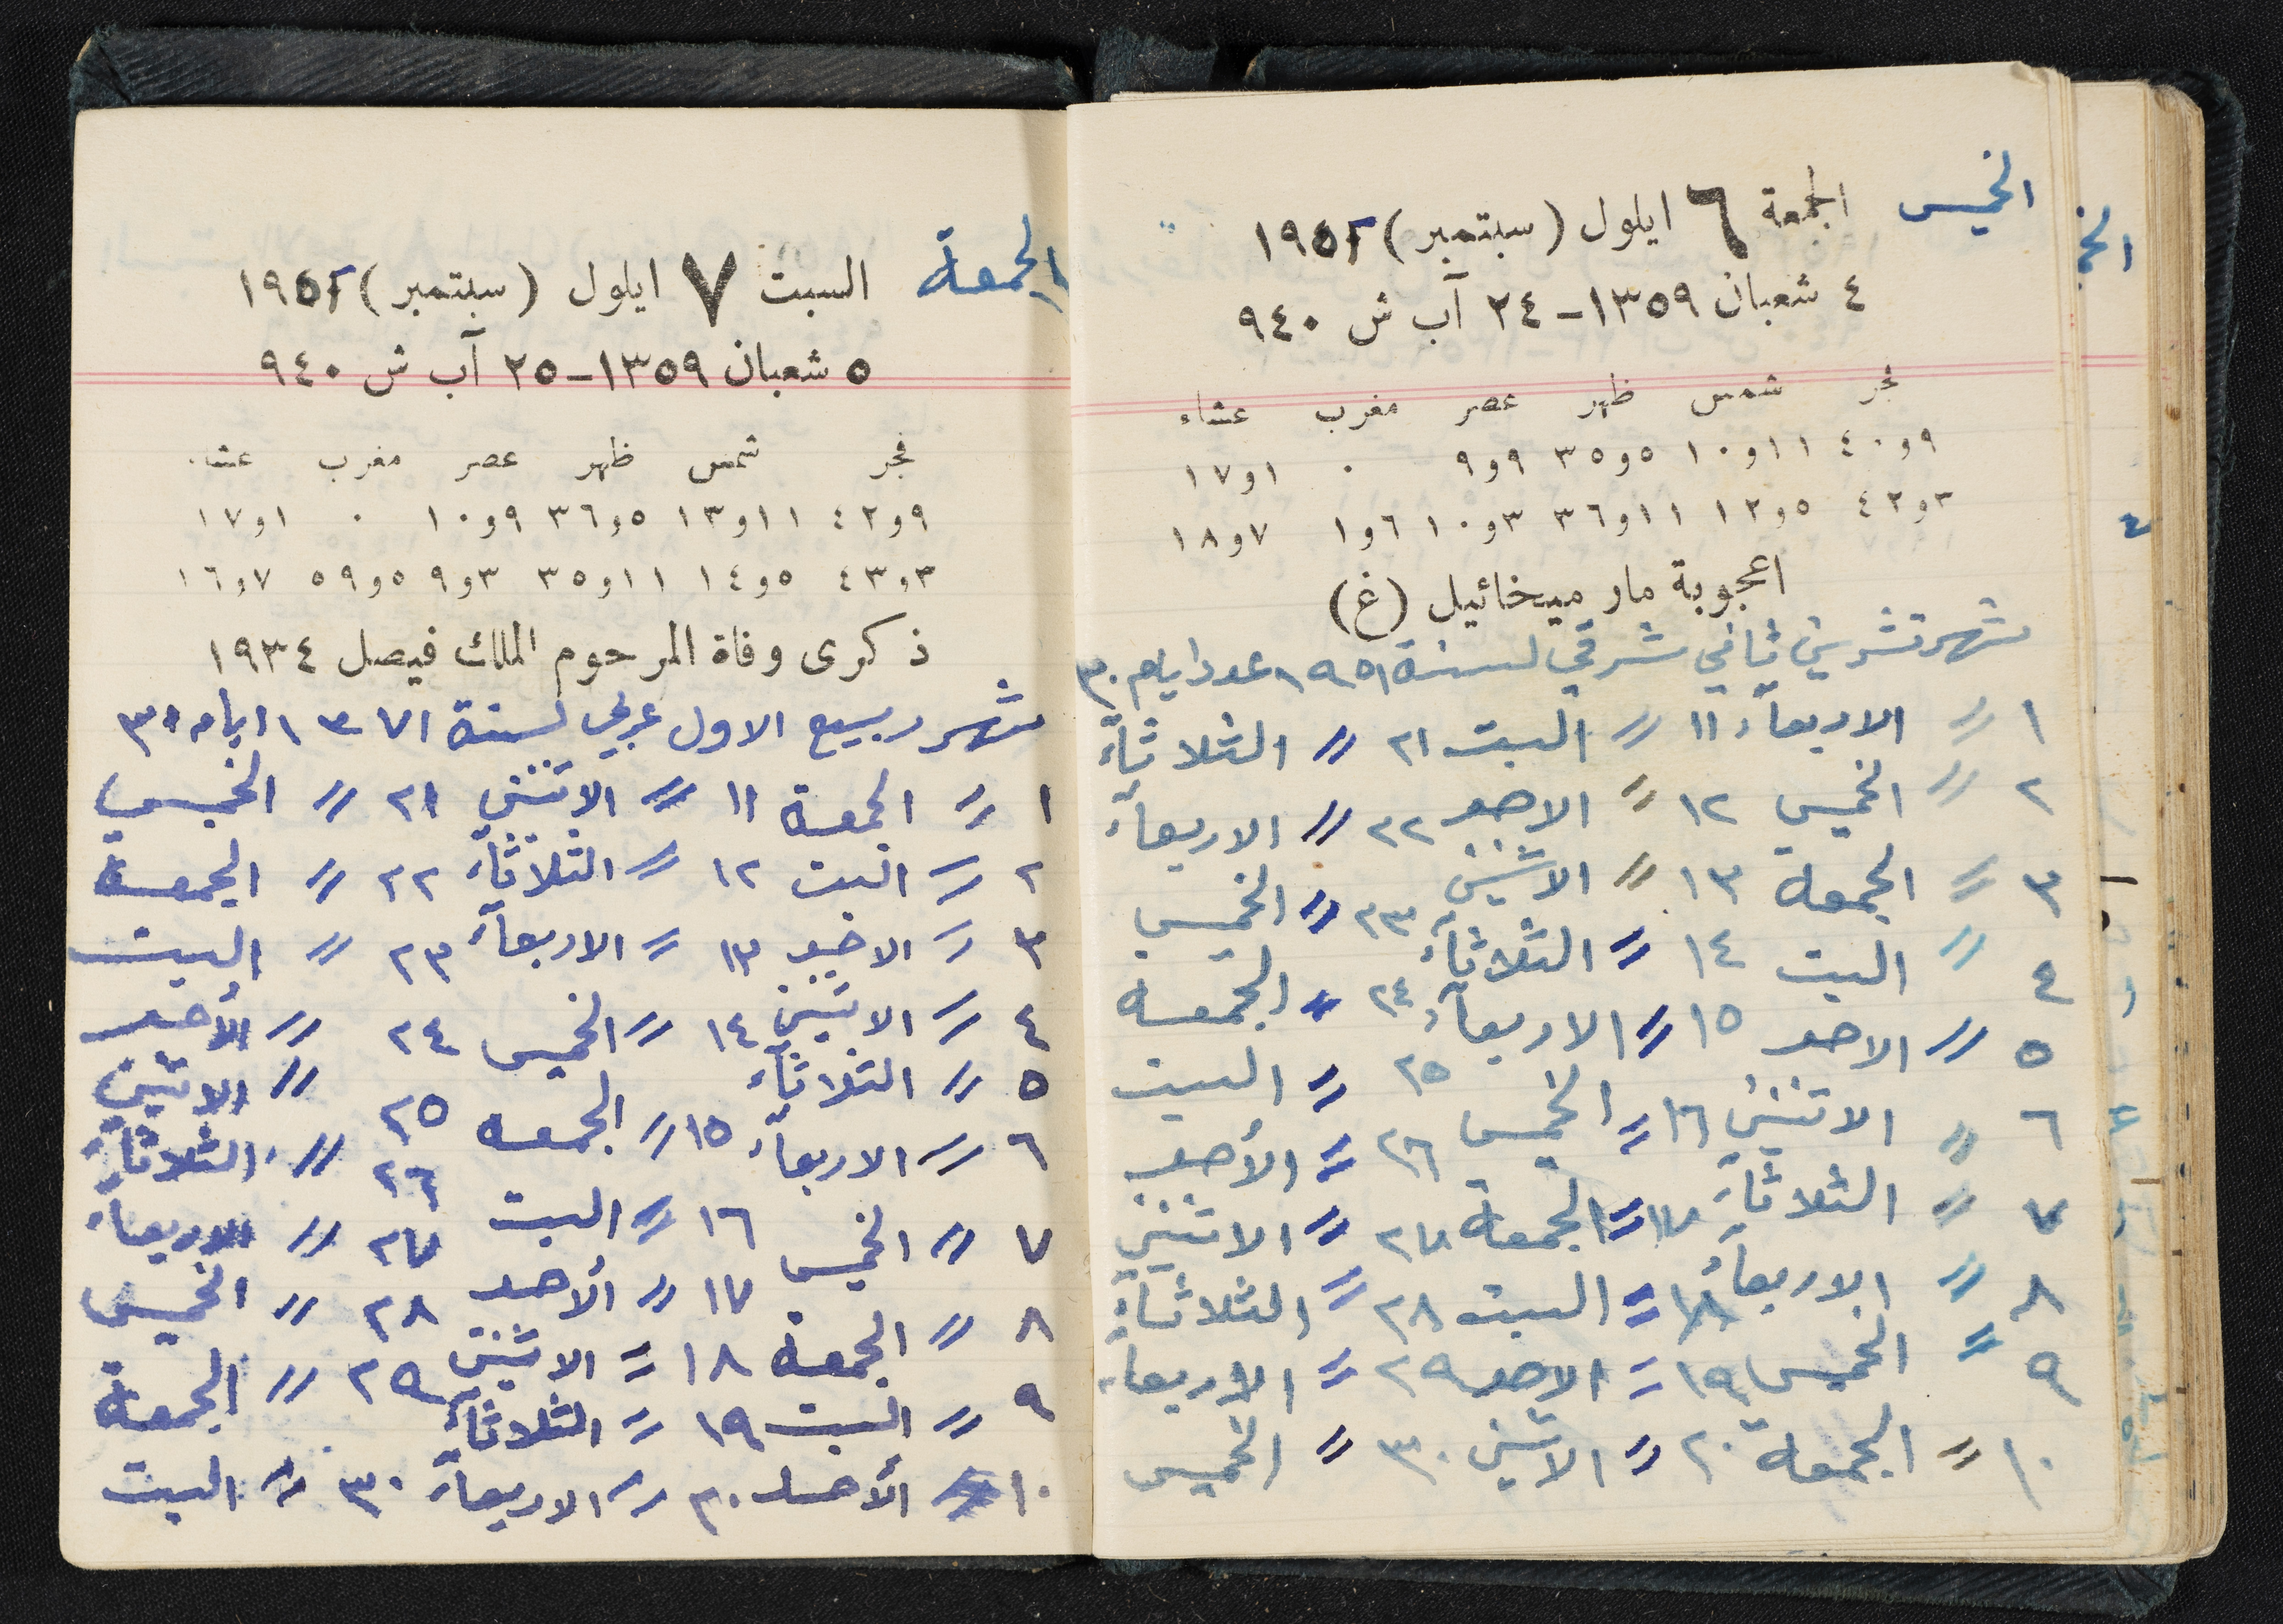 الخميس الجمعة ٦ ايلول (سبتمبر) ١٩٥٢
٤ شعبان ١٣٥٩ - ٢٤ آب ش ٩٤٠
فجر شمس ظهر عصر مغرب عشاء
٩و٤٠ ١١و١٠ ٥و٣٥ ٩و٩ ٠ ١و١٧
٣و٤٢ ٥و١٢ ١١و٣٦ ٣و١٠ ٦و١ ٧و١٨
اعجوبة مار ميخائيل (غ)
شهر تشرين ثاني شرقي لسنة ١٩٥١ عدد ايام ٣٠
١ " الاربعآء ١١ " السبت ٢١ " الثلاثآء
٢ " الخميس ١٢ " الاحد ٢٢ " الاربعآء
٣ " الجمعة ١٣ " الاثنين ٢٣ " الخميس
٤ " السبت ١٤ " الثلاثآء ٢٤ " الجمعة
٥ " الاحد ١٥ " الاربعآء ٢٥ " السبت
٦ " الاثنين ١٦ " الخميس ٢٦ " الأحد
٧ " الثلاثآء ١٧ " الجمعة ٢٧ " الاثنين
٨ " الاربعآء ١٨ " السبت ٢٨ " الثلاثآء
٩ " الخميس ١٩ " الاحد ٢٩ " الاربعآء
١٠ " الجمعة ٢٠ " الاثنين ٣٠ " الخميس
الجمعة السبت ٧ ايلول (سبتمبر) ١٩٥٢
٥ شعبان ١٣٥٩ - ٢٥ آب ش ٩٤٠
فجر شمس ظهر عصر مغرب عشاء
٩و٤٢ ١١و١٣ ٥و٣٦ ٩و١٠ ٠ ١و١٧
٣و٤٣ ٥و١٤ ١١و٣٥ ٣و٩ ٥و٥٩ ٧و١٦
ذكرى وفاة المرحوم الملك فيصل ١٩٣٤
شهر ربيع الاول عربي لسنة ١٣٧١ ايام ٣٠
١ " الجمعة ١١ " الاثنين ٢١ " الخميس
٢ " السبت ١٢ " الثلاثآء ٢٢ " الجمعة
٣ " الاحد ١٣ " الاربعآء ٢٣ " السبت
٤ " الاثنين ١٤ " الخميس ٢٤ " الأحد
٥ " الثلاثآء ١٥ " الجمعه ٢٥ " الاثنين
٦ " الاربعآء ١٦ " السبت ٢٦ " الثلاثآء
٧ " الخميس ١٧ " ألأحد ٢٧ " الاربعآء
٨ " الجمعة ١٨ " الاثنين ٢٨ " الخميس
٩ " السبت ١٩ " الثلاثآء ٢٩ " الجمعة
١٠ " ألأحد ٢٠ " الاربعآء ٣٠ " السبت